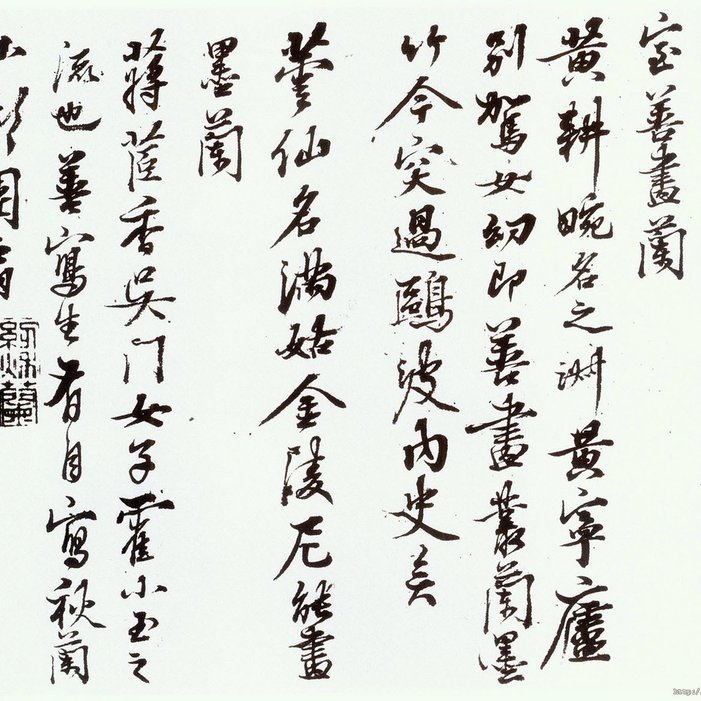 室善畫蘭
黄耕畹名之淋黄寧廬
别駕女幼即善畫叢蘭墨
竹今突過鷗波内史矣
蕓仙名满姑金陵尼能畫
墨蘭
蔣蓝香吴門女子霍小玉之
流也善寫生有自寫秋蘭